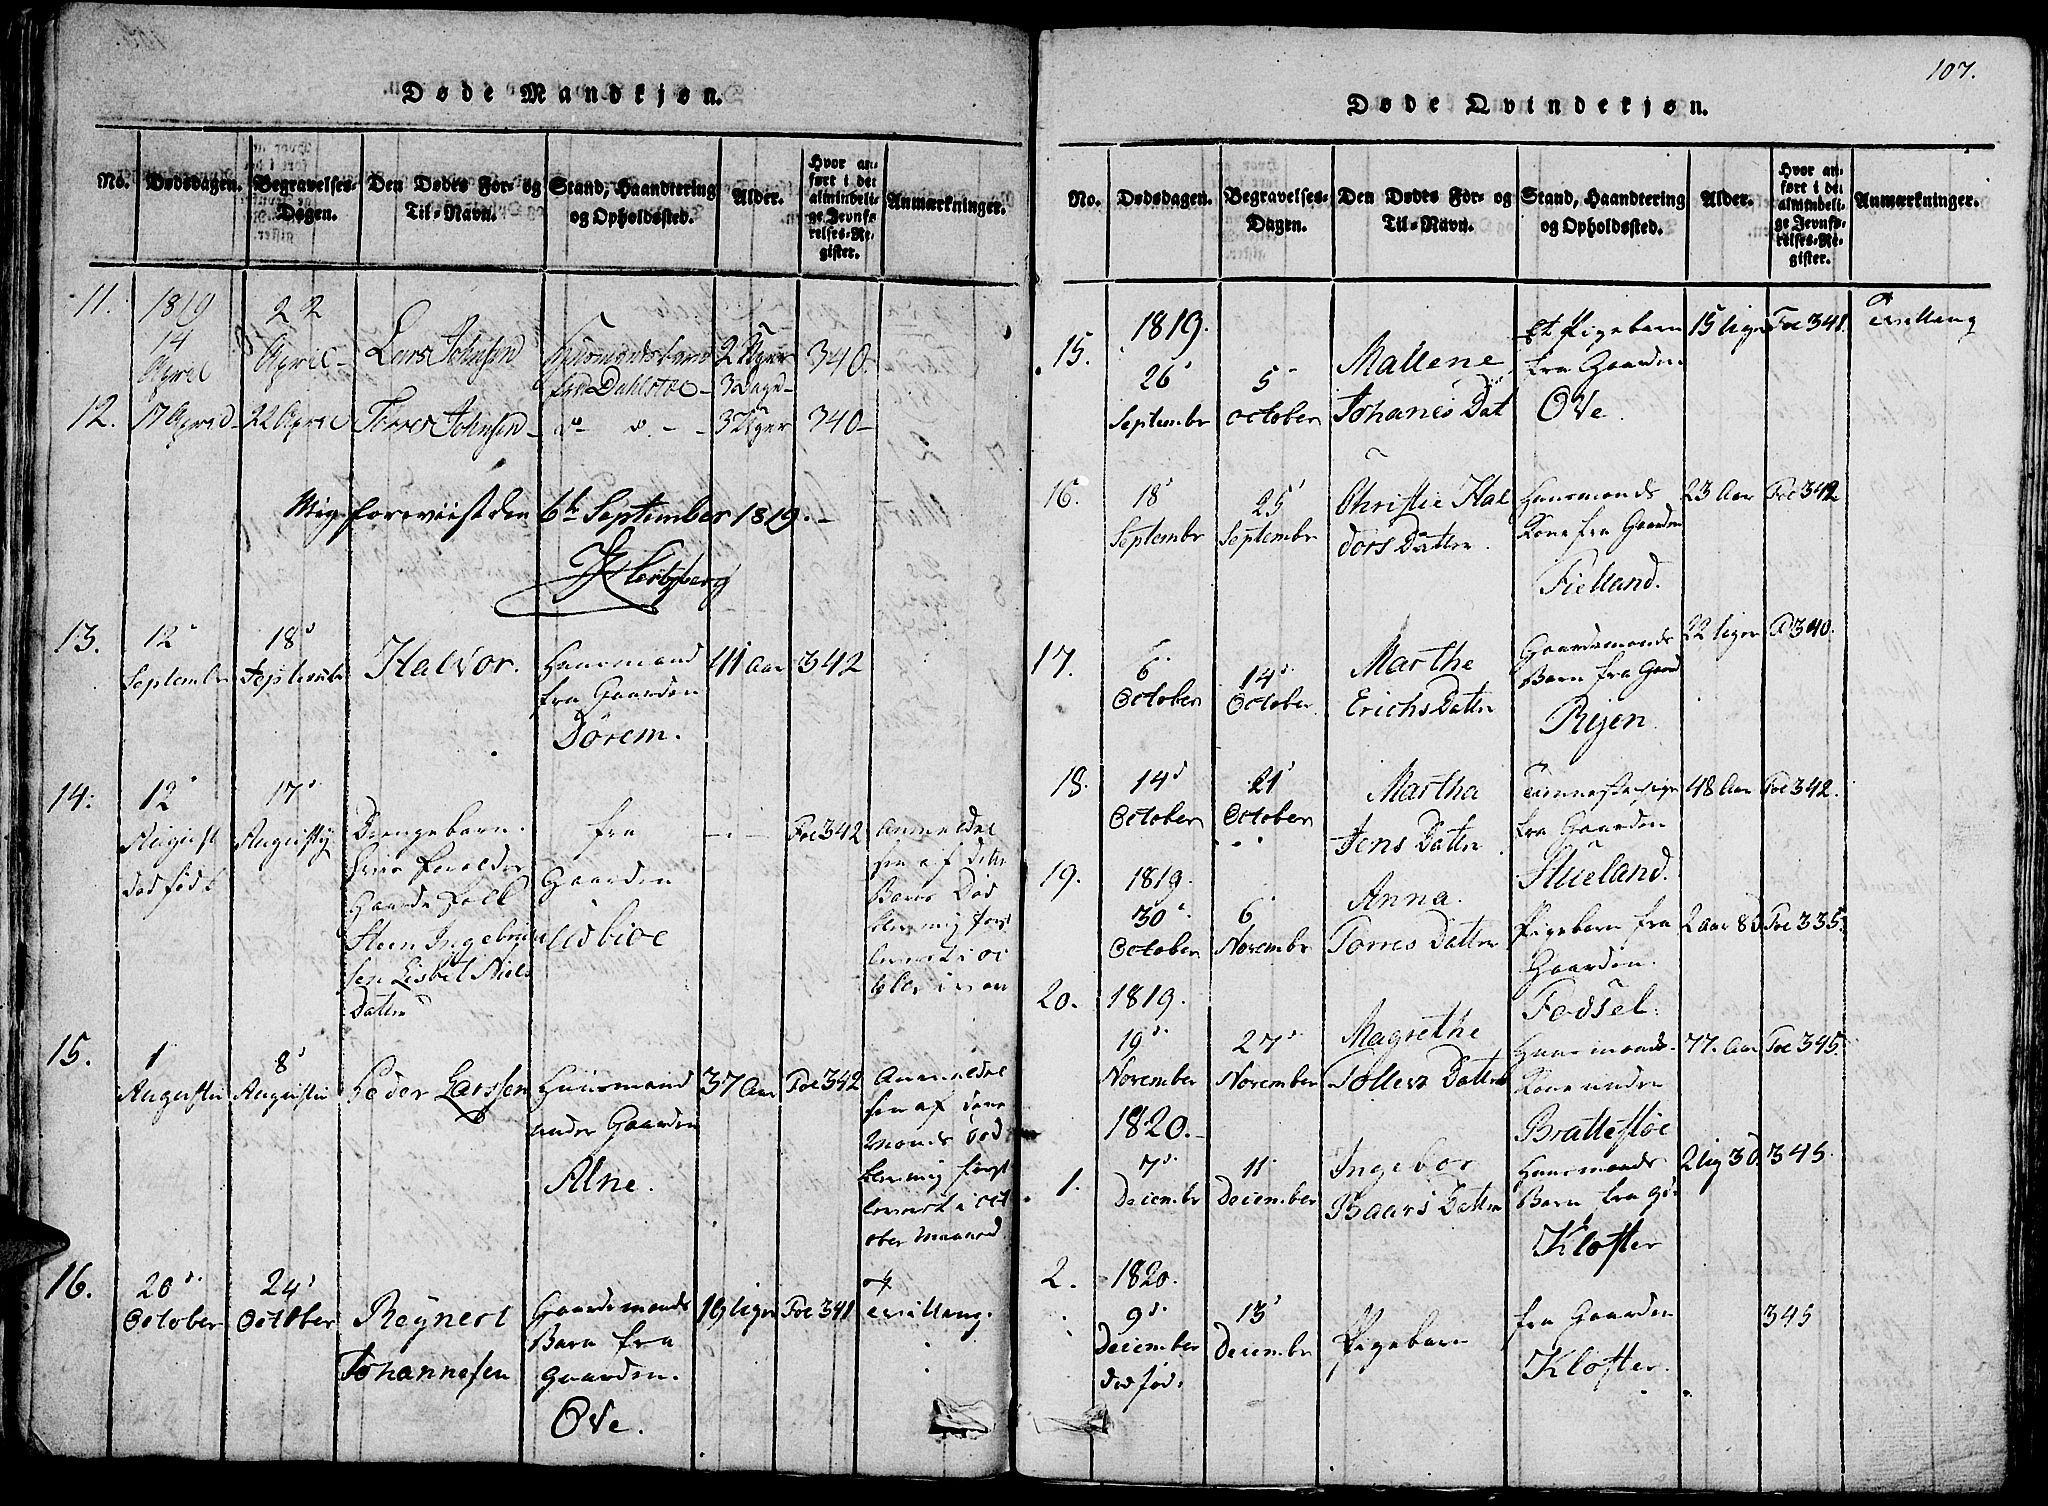 Døde Mandkjøn.
No. Dødsdagen. Begravelses-Dagen. Den Dødes For- og Til-Navn. Stand, Haandtering og Opholdssted. Alder. Hvor anført i det almindelige Jevnførelses-Register. Anmærkninger.
11. 1819 14 April 22 April Lars Johnsen fra Dahlstøe 2 Uger 3 Dage 340.
12. 17 April 22 April Torres Johnsen 3 Uger 340
Mig foreviist den 6te September 1819.
Hertzberg
13. 12 September 18 September Halvor. Huusmand fra Gaarden Dörem. 41 Aar 342
14. 12 August dødfød 17 Augusty Drengebarn. Gaarde Foll Steen Ingebrigt sen Lisbet Niels Datter fra Gaarden Udbioe Foe 342 Anmeldel sen af dette Barns Død blev mig først
15. 1 Augusti 8 Augusti Peder Larssen Huusmand under Gaarden Alne. 37 Aar Foe 342 Anmeldel sen af denne Mands Død blev mig først leveret i oct ober maaned
16. 20 October 24 October Reynert Johannesen Gaardemands Barn fra Gaarden. Ove. 19 uger Foe 341 Tvilling.
107.
Døde Qvindekjøn.
No. Dødsdagen. Begravelses-Dagen. Den Dødes For- og Til-Navn. Stand, Haandtering og Opholdssted. Alder. Hvor anført i det almindelige Jevnførelses-Register. Anmærkninger.
15. 1819. 26 September 5 October Mallene Johanes Dat Et Pigebarn fra Gaarden Ove. 15 uger Foe 341. Tvilling
16. 18 September 25 September Christie Hal dors Datter. Huusmands Kone fra Gaarden Fielland. 23 Aar Foe 342
17. 6 October 14 October Marthe Erichs Datter Gaardemands Barn fra Gaard Ryen. 22 uger Fo 340.
18. 14 October 21 October Martha Jens Datter fra Gaarden Stueland. 48 Aar Foe 342.
19. 1819. 30 October 6 November Anna. Torres Datter Pigebarn fra Gaarden. Fodsel. 2 aar Foe 335.
20. 1819. 19 November 27 November Magrethe Tollevs Datter Huusmands Kone under Brattestöe 77. Aar Foe 345.
1820.
1. 7 December 11 December Ingebor Baars Datter Huusmands Barn fra G Kloster 2 ug 3 D. 345.
2. 1820. 9 December dødfød. 13 December Pigebarn fra Gaarden Kloster. 345